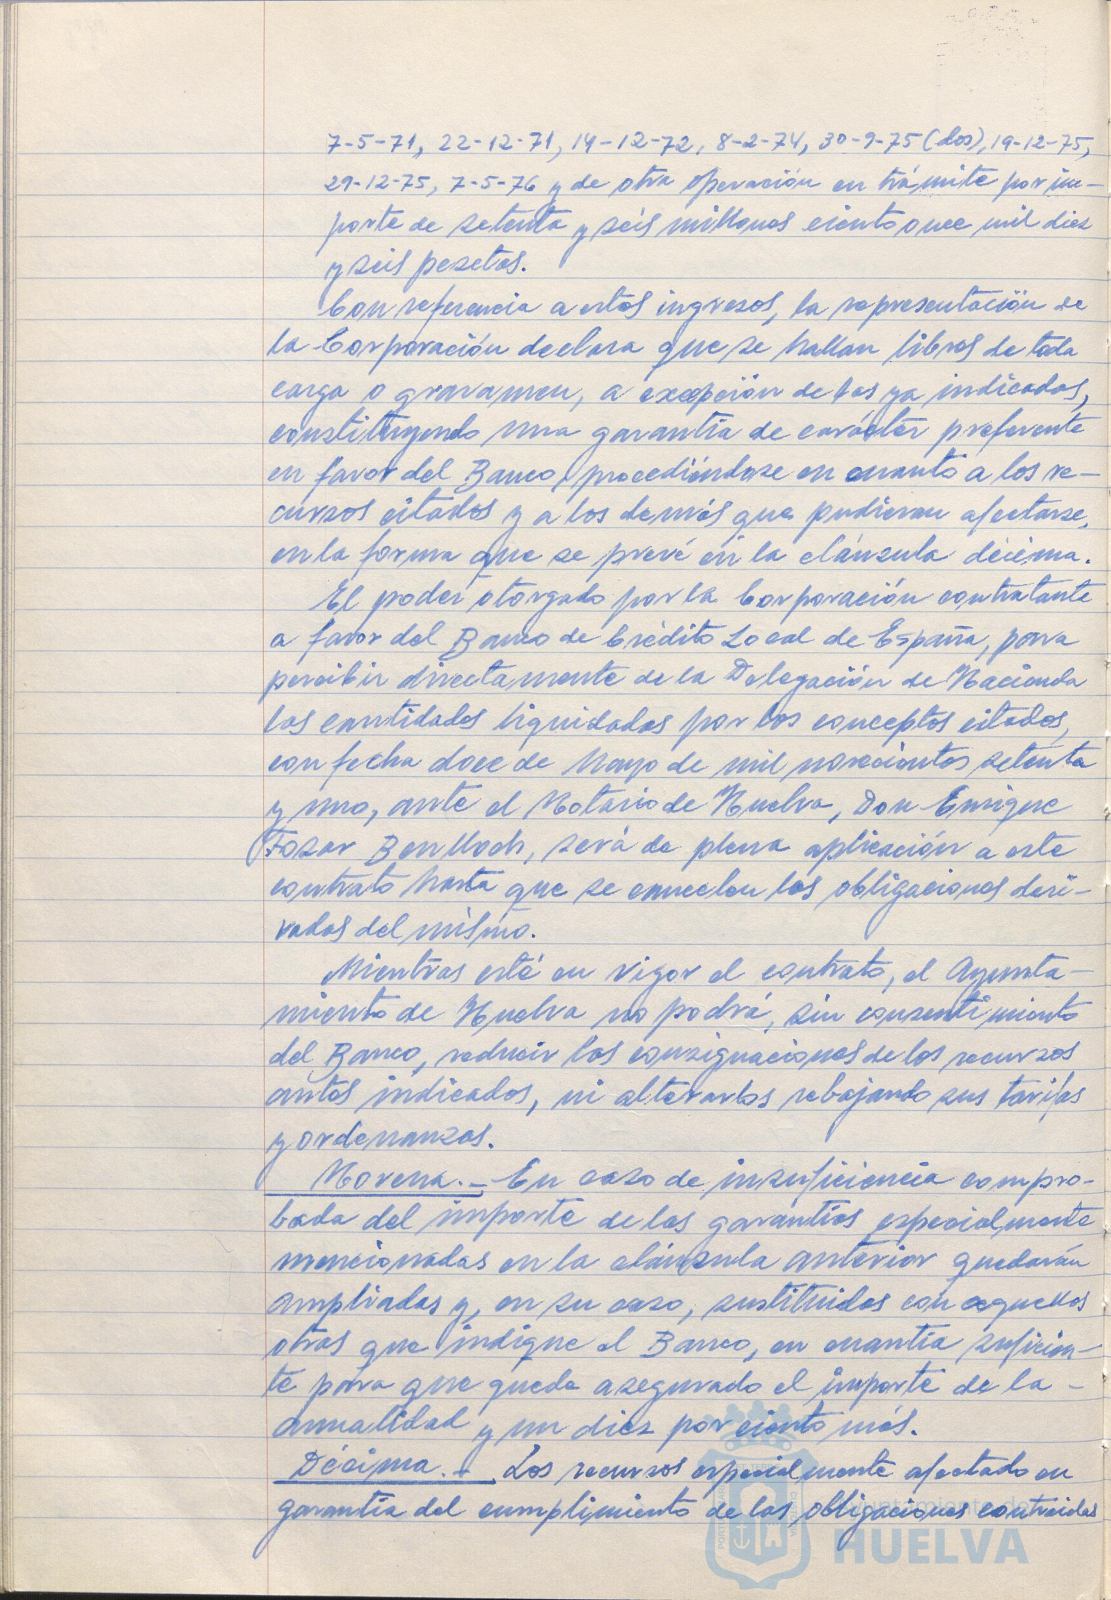 7-5-71, 22-12-71, 14-12-72, 8-2-74, 30-9-75 (dos), 19-12-75,
29-12-75, 7-5-76 y de otra operación en trámite por im-
porte de setenta y seis millones ciento once mil diez
y seis pesetas.
Con referencia a estos ingresos, la representación de
la Corporación declara que se hallan libres de toda
carga o gravamen, a excepción de las ya indicadas,
constituyendo una garantía de carácter preferente
en favor del Banco, procediéndose en cuanto a los re-
cursos citados y a los demás que pudieran afectarse,
en la forma que se prevé en la cláusula décima.
El poder otorgado por la Corporación contratante
a favor del Banco de Crédito Local de España, para
percibir directamente de la Delegación de Hacienda
las cantidades liquidadas por los conceptos citados,
con fecha doce de Mayo de mil novecientos setenta
y uno, ante el Notario de Huelva, Don Enrique
Benlloch, será de plena aplicación a este
contrato hasta que se cancelen las obligaciones deri-
vadas del mismo.
Mientras esté en vigor el contrato, el Ayunta-
miento de Huelva no podrá, sin consentimiento
del Banco, reducir las consignaciones de los recursos
antes indicados, ni alterarlos rebajando sus tarifas
y ordenanzas.
Novena.- En caso de insuficiencia compro-
bada del importe de las garantías especialmente
mencionadas en la cláusula anterior quedarán
ampliadas y, en su caso, sustituidas con aquellas
otras que indique el Banco, en cuantía suficien-
te para que quede asegurado el importe de la -
anualidad y un diez por ciento más.
Décima.- Los recursos especialmente afectado en
garantía del cumplimiento de las obligaciones contraídas
Ayuntamiento de
HUELVA